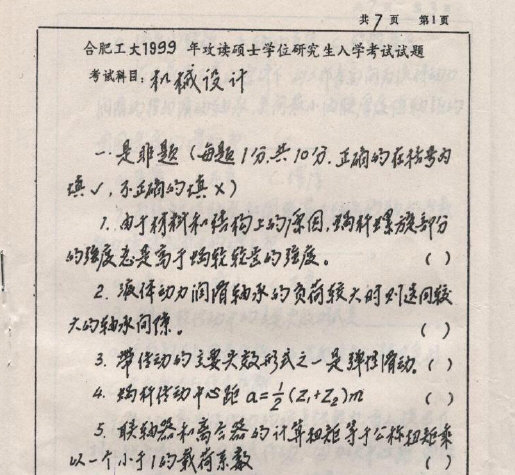 共7页 第1页
合肥工大1999 年攻读硕士学位研究生入学考试试题
考试科目:机械设计
一.是非题(每题1分,共10分.正确的在括号内
填✓,不正确的填×)
1.由于材料和结构上的原因,蜗杆螺旋部分
的强度总是高于蜗轮轮齿的强度。 ( )
2.液体动力润滑轴承的负荷较大时则选间较
大的轴承间隙。 ( )
3.带传动的主要失效形式之一是弹性滑动。( )
4.蜗杆传动中心距 a=½(Z₁+Z₂)m ( )
5.联轴器和离合器的计算扭矩等于公称扭矩乘
以一个小于1的载荷系数 ( )